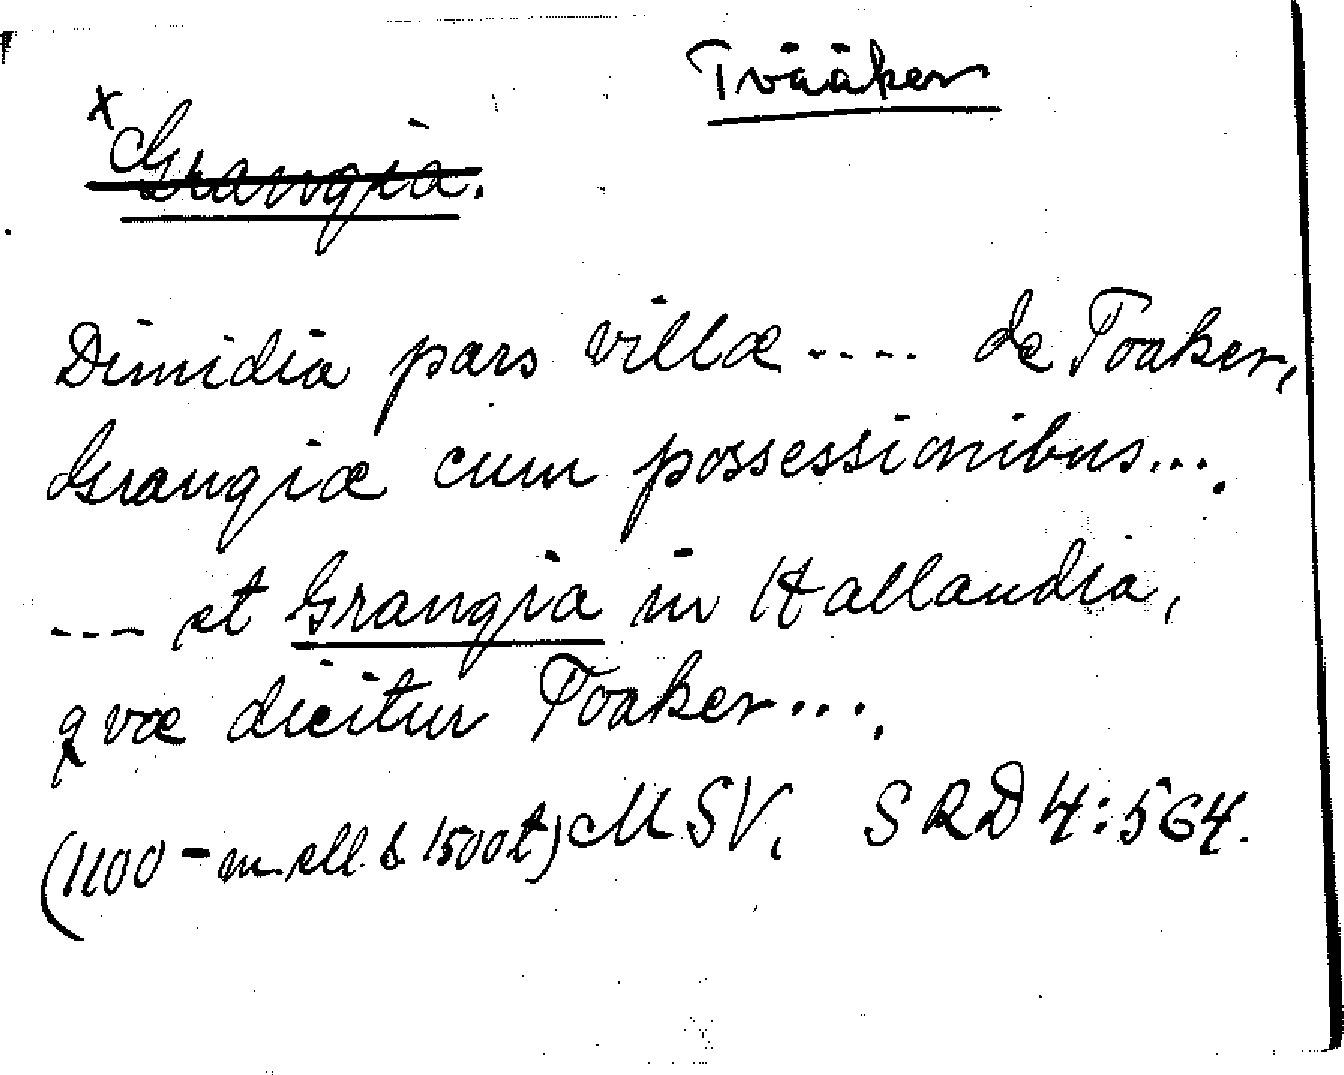 Tvååker
x Grangia.
Dimidia pars villæ .... de Toaker,
Grangiæ cum possessionibus....
--- et Grangia in Hallandia,
qvæ dicitur Toaker....
(1100 - m. ell. b 1500t) MSV. SRD 4:564.